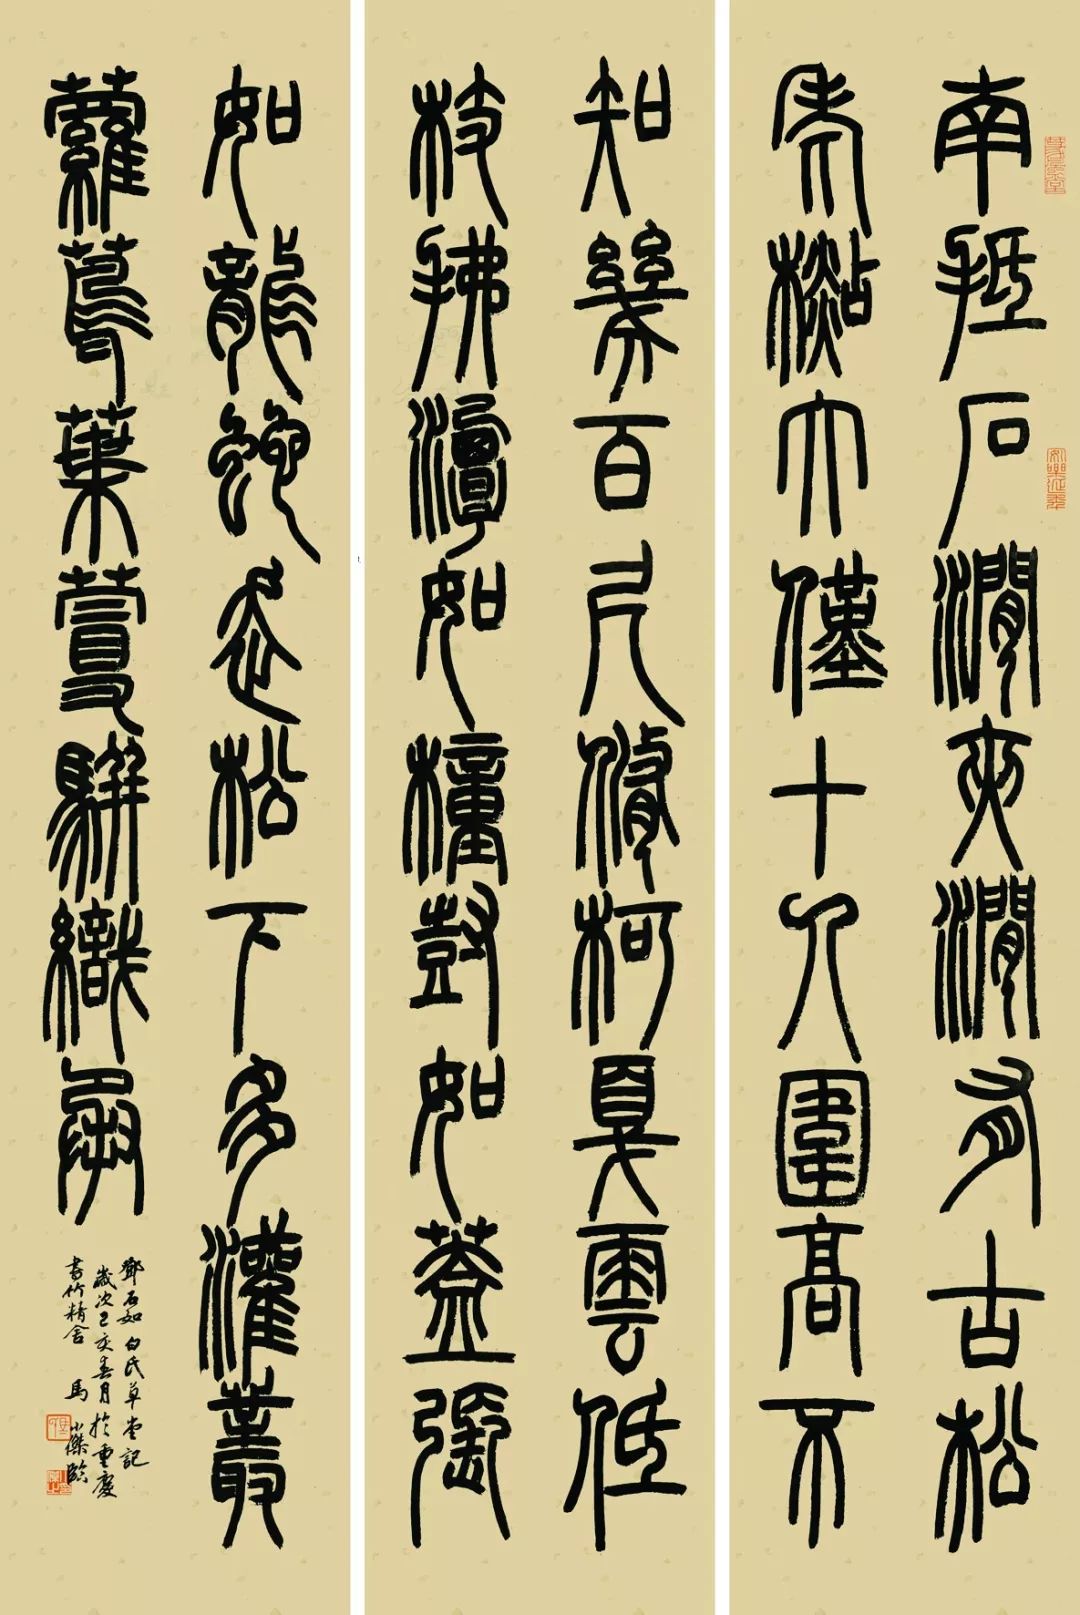 南抵石澗夾澗有古松
老杉大僅十人圍高不
知幾百尺脩柯戛雲低
枝拂潭如橦竪如蓋張
如龍蛇走松下多灌叢
蘿蔦葉蔓駢織承
鄧石如白氏草堂記
歲次己亥春月於重慶
書竹精舍 馬小傑臨